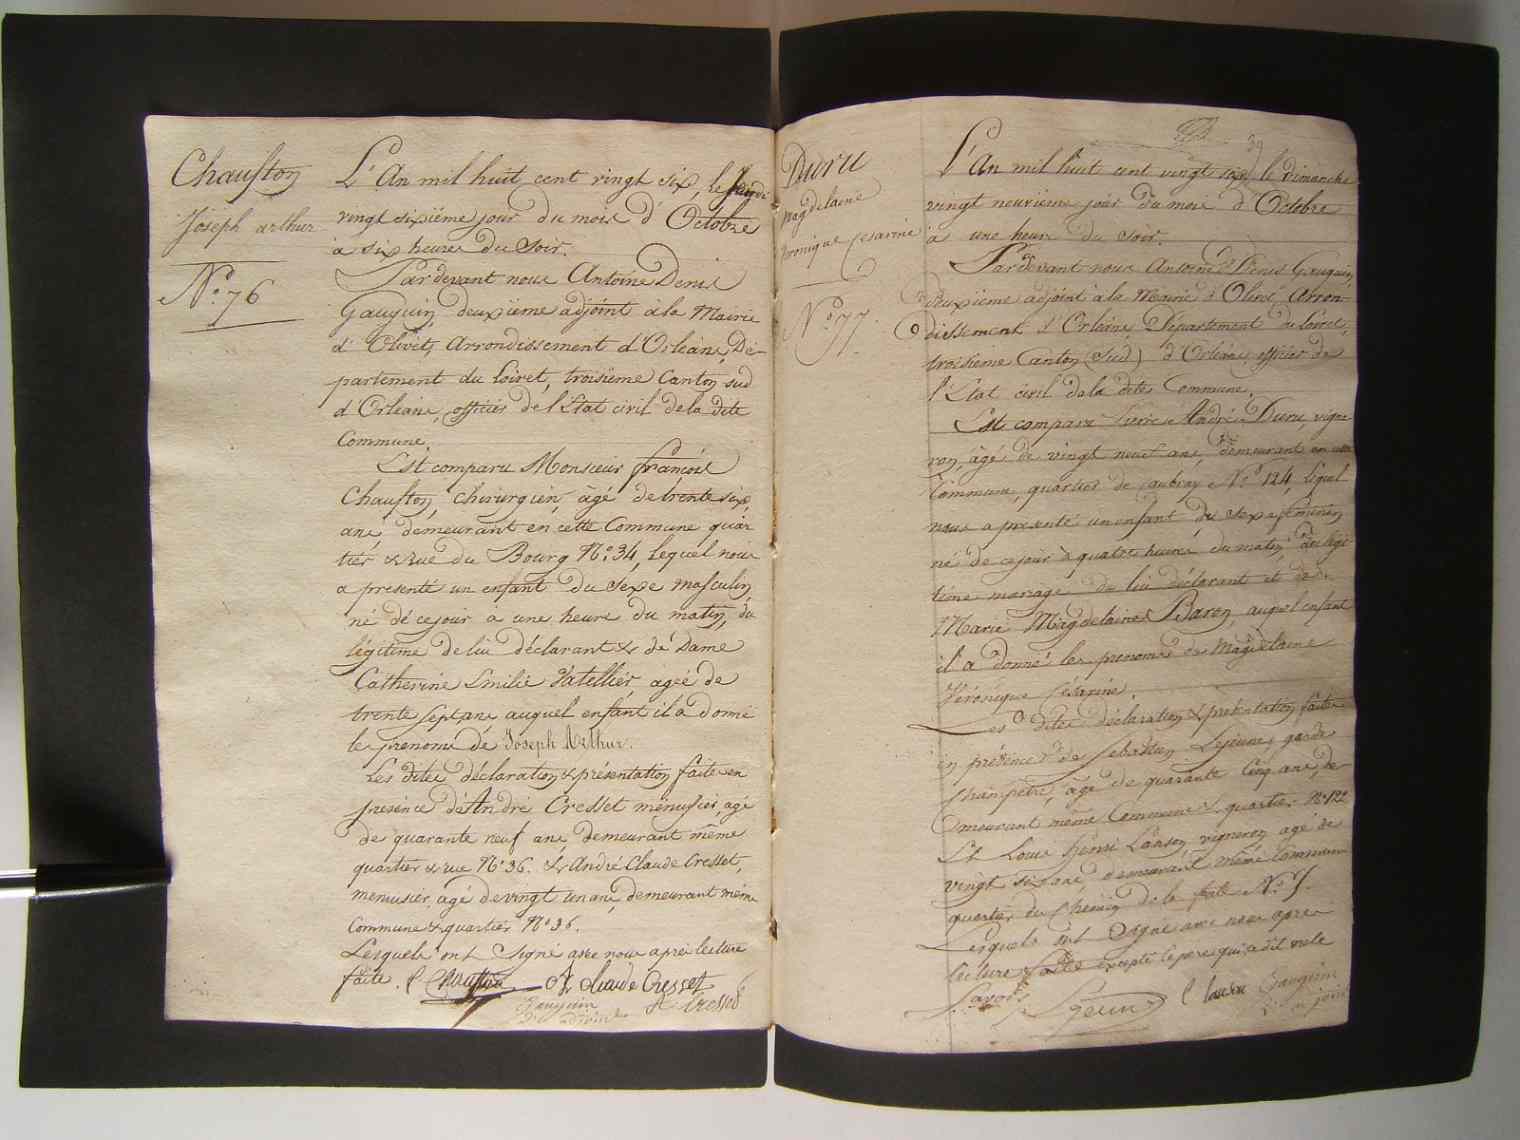 Chaufton
Joseph arthur
N.º 76
L'An mil huit cent vingt six, le jeudi
vingt sixiëme jour du mois d'Octobre
à six heures du Soir.
Pardevant nous Antoine Denis
Gauguin, deuxiëme adjoint à la Mairie
d'Olivet, Arrondissement d'Orléans, Dé-
partement du Loiret, troisiëme Canton sud
d'Orléans, officier de l'Etat civil de la dite
Commune.
Est comparu Monsieur françois
Chaufton, chirurgien, âgé de trente six
ans, demeurant en cette Commune quar
tier & rue du Bourg N.º 34, lequel nous
a presenté un enfant du Sexe masculin
né dé ce jour à une heure du matin, du
légitime de lui déclarant & dé Dame
Catherine Emilie Vatellier agée de
trente sept ans auquel enfant il a donné
les prenoms dé Joseph Arthur.
Les dites déclaration & présentation faites en
presence d'André Cresset menusier, agé
de quarante neuf ans, demeurant même
quartier & rue N.º 36. & André Claude Cresset,
menusier, agé de vingt un ans, demeurant même
Commune & quartier N.º 36.
Lesquels ont Signé avec nous après lecture
faite. f. Chaufton A Claude Cresset
Gauguin A Cresset
adjoint
Duru
Magdelaine
Véronique Césarine
N.º 77.
39
L'An mil huit cent vingt six, le dimanche
vingt neuvieme jour du mois d'Octobre
à une heure du Soir.
Pardevant nous Antoine Denis Gauguin,
deuxiëme adjoint à la Mairie d'Olivet, Arron-
dissement d'Orléans, Département du Loiret,
troisieme Canton (Sud) d'Orléans officier de
l'Etat civil de la dite Commune.
Est comparu Pierre André Duru vigne
ron, âgé de vingt neuf ans, demeurant en cette
Commune, quartier de Caubray N.º 124, lequel
nous a presenté un enfant du Sexe feminin
né de ce jour à quatre heures du matin, du légi
time mariage de lui déclarant et de
Marie Magdelaine Baron, auquel enfant
il a donné les prenoms de Magdelaine
Véronique Césarine.
Les dites déclaration & présentation faites
en présence de Sebastien Lejeune, garde
champêtre, âgé de quarante Cinq ans, de-
meurant même Commune & quartier N.º 122
Et Louis Henri Lanson, vigneron, agé de
vingt six ans, demeurant même Commune
quartier du Chemin de la N.º 7.
Lesquels ont Signé avec nous après
lecture faite excepté le pere qui a dit ne le
Savoir. Lejeune l lanson Gauguin
adjoint